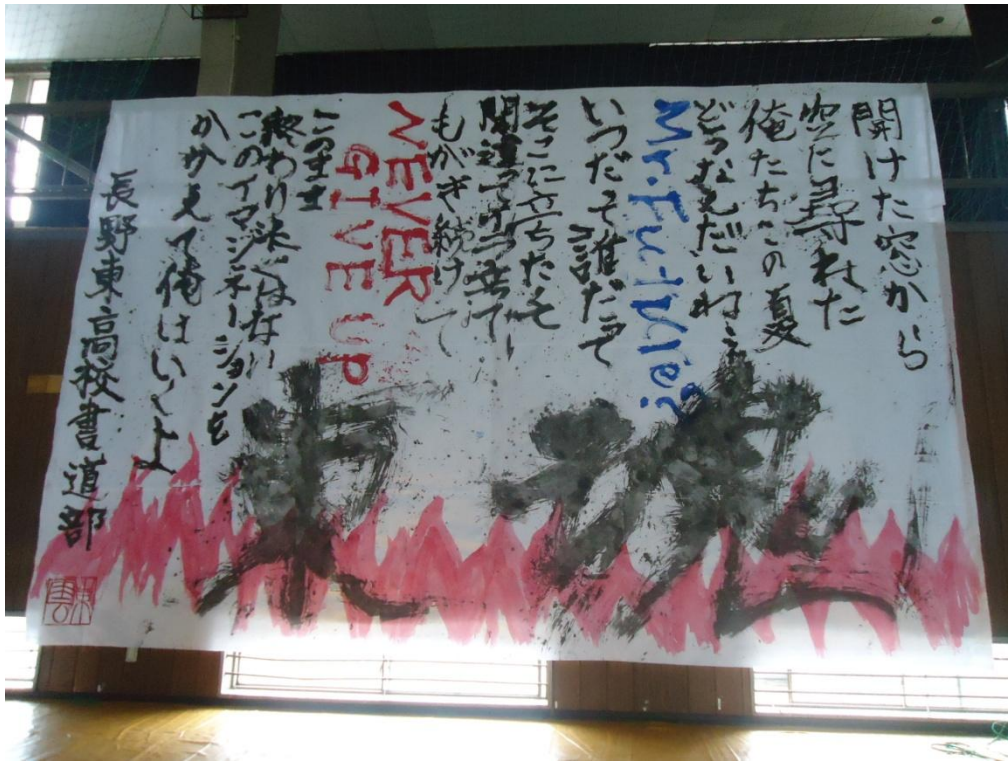 開けた窓から
空に尋ねた
俺たちこの夏
どうなんだいねぇ
Mr.Future?
いつだって誰だって
そこに立ちたくて
間違って
もがき続けて
NEVER
GIVE UP
このまま
終わりじゃない
このイマジネーションを
かかえて俺はいくよ
長野東高校書道部